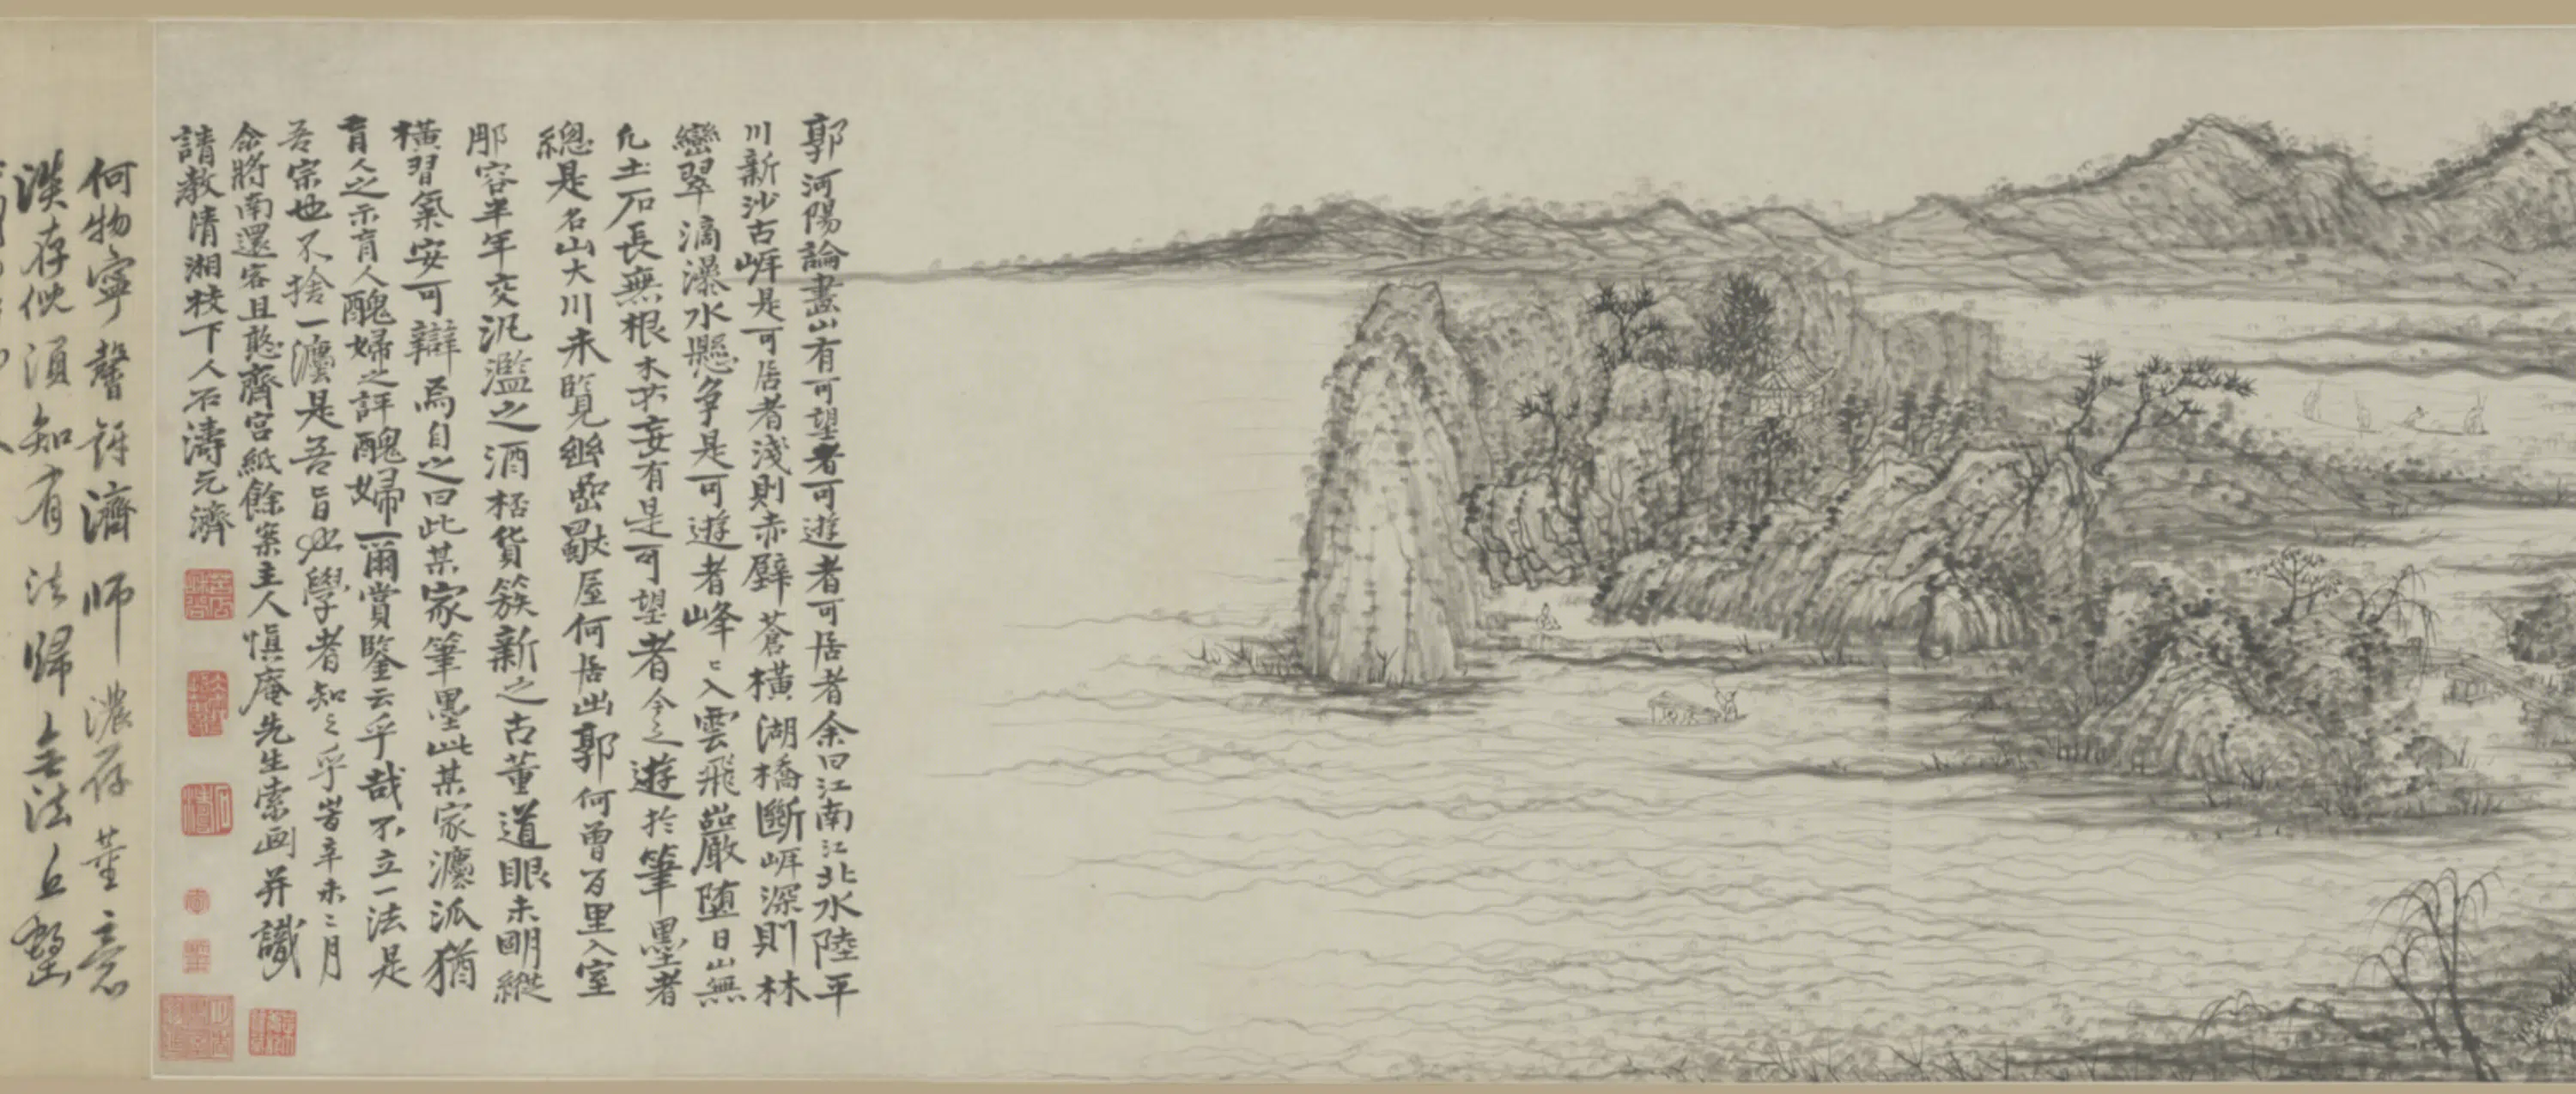 郭河陽論畫山有可望者可遊者可居者余曰江南江北水陸平
川新沙古岸是可居者淺則赤壁蒼橫湖橋斷岸深則林
巒翠滴瀑水懸爭是可遊者峰峰入雲飛巖墮日山無
凡土石長無根木不妄有是可望者今之遊於筆墨者
總是名山大川未覽幽巖獨屋何居出郭何曾百里入室
那容半年交泛濫之酒桮貨簇新之古董道眼未明縱
橫習氣安可辯焉自之曰此某家筆墨此某家瀍派猶
盲人之示盲人醜婦之評醜婦一爾賞鑒云乎哉不立一法是
吾宗也不捨一瀍是吾旨也學者知之乎旹辛未二月
余將南還客且憨齋宮紙餘案主人慎庵先生索画并識
請教清湘枝下人石濤元濟
何物寧馨許濟師濃存董意
淡存倪須知有法歸無法丘壑